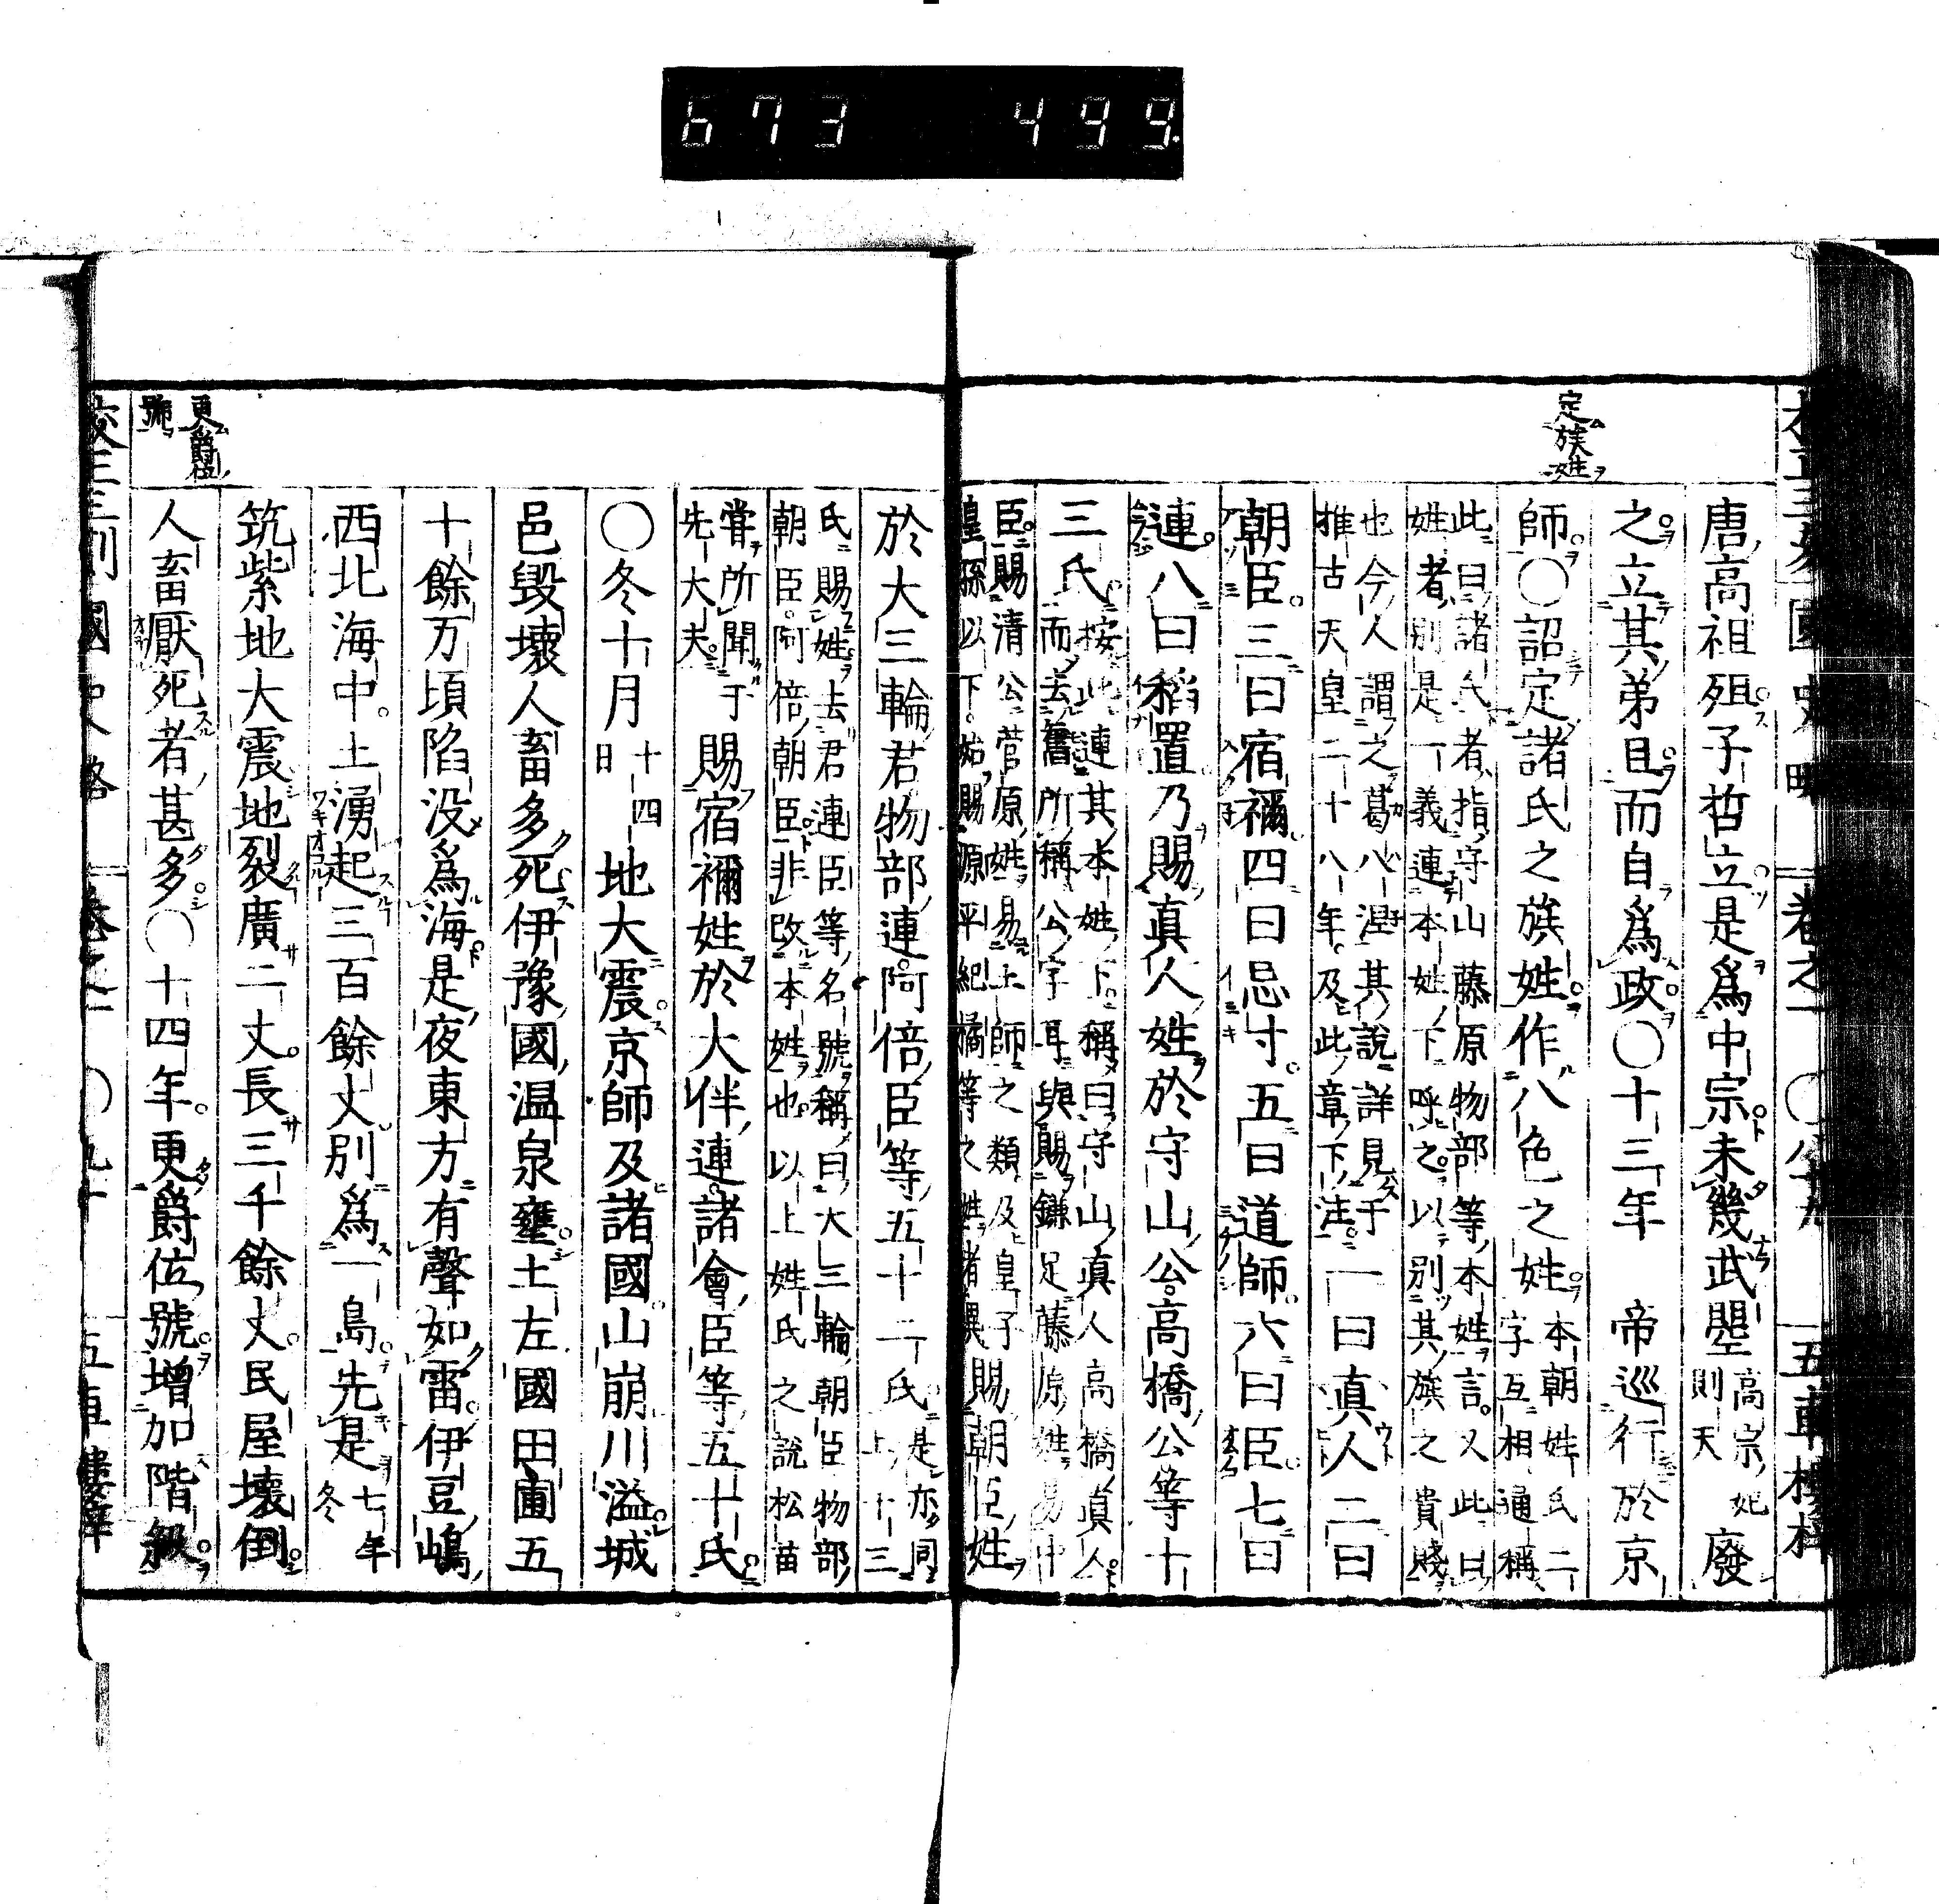 673 499
定族姓
唐高祖殂子哲立是為中宗未幾武曌高宗妃則天廢
之立其弟旦而自為政〇十三年 帝巡行於京
師〇詔定諸氏之族姓作八色之姓本朝姓氏二字互相通稱
此曰諸氏者指守山藤原物部等本姓言又此曰
姓者別是一義連本姓下呼之以別其族之貴賤
也今人謂之葛八涅其說詳見于
推古天皇二十八年及此章下注一曰真人二曰
朝臣三曰宿禰四曰忌寸五曰道師六曰臣七曰
連八曰稻置乃賜真人姓於守山公高橋公等十
三氏按此連其本姓下稱曰守山真人高橋真人
而去舊所稱公字耳與賜鎌足藤原姓易中
臣賜清公菅原姓易土師之類及皇子
皇孫以下始賜源平紀橘等之姓者異賜朝臣姓
於大三輪君物部連阿倍臣等五十二氏是亦同上十三
氏賜姓去君連臣等名號稱曰大三輪朝臣物部
朝臣阿倍朝臣非改本姓也以上姓氏之說松苗
嘗所聞于
先大夫賜宿禰姓於大伴連諸會臣等五十氏
〇冬十月十四日地大震京師及諸國山崩川溢城
邑毀壞人畜多死伊豫國温泉壅土左國田圃五
十餘万頃陷没為海是夜東方有聲如雷伊豆嶋
西北海中土湧起三百餘丈別為一島先是七年冬
筑紫地大震地裂廣二丈長三千餘丈民屋壞倒
人畜厭死者甚多〇十四年更爵位號增加階級
更爵位
號